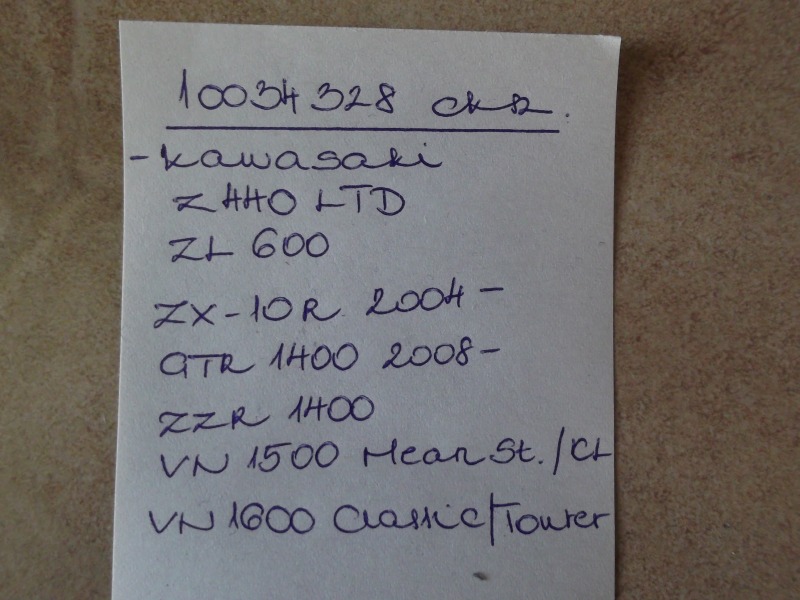 10034328
- Kawasaki
Z 440 LTD
ZL 600
ZX-10R 2004-
GTR 1400 2008-
ZZR 1400
VN 1500 Mean St./CL
VN 1600 Classic/Tourer